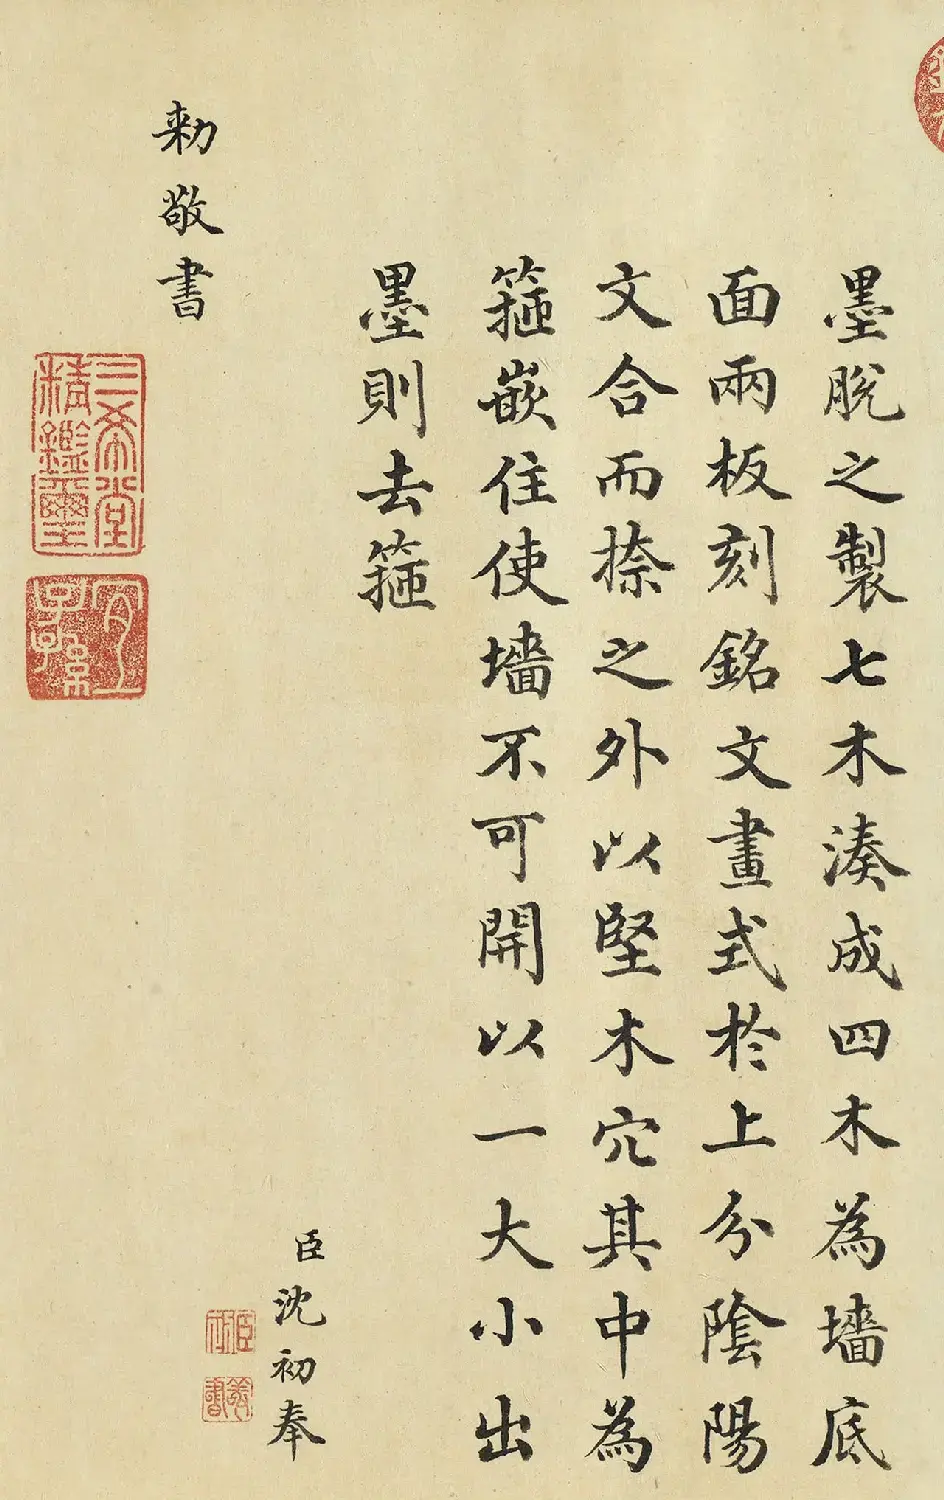 墨脫之製七木湊成四木為墻底
面兩板刻銘文畫式於上分陰陽
文合而捺之外以堅木穴其中為
箍嵌住使墻不可開以一大小出
墨則去箍
臣沈初奉
勅敬書
三希堂
精鑑璽
宜
子孫